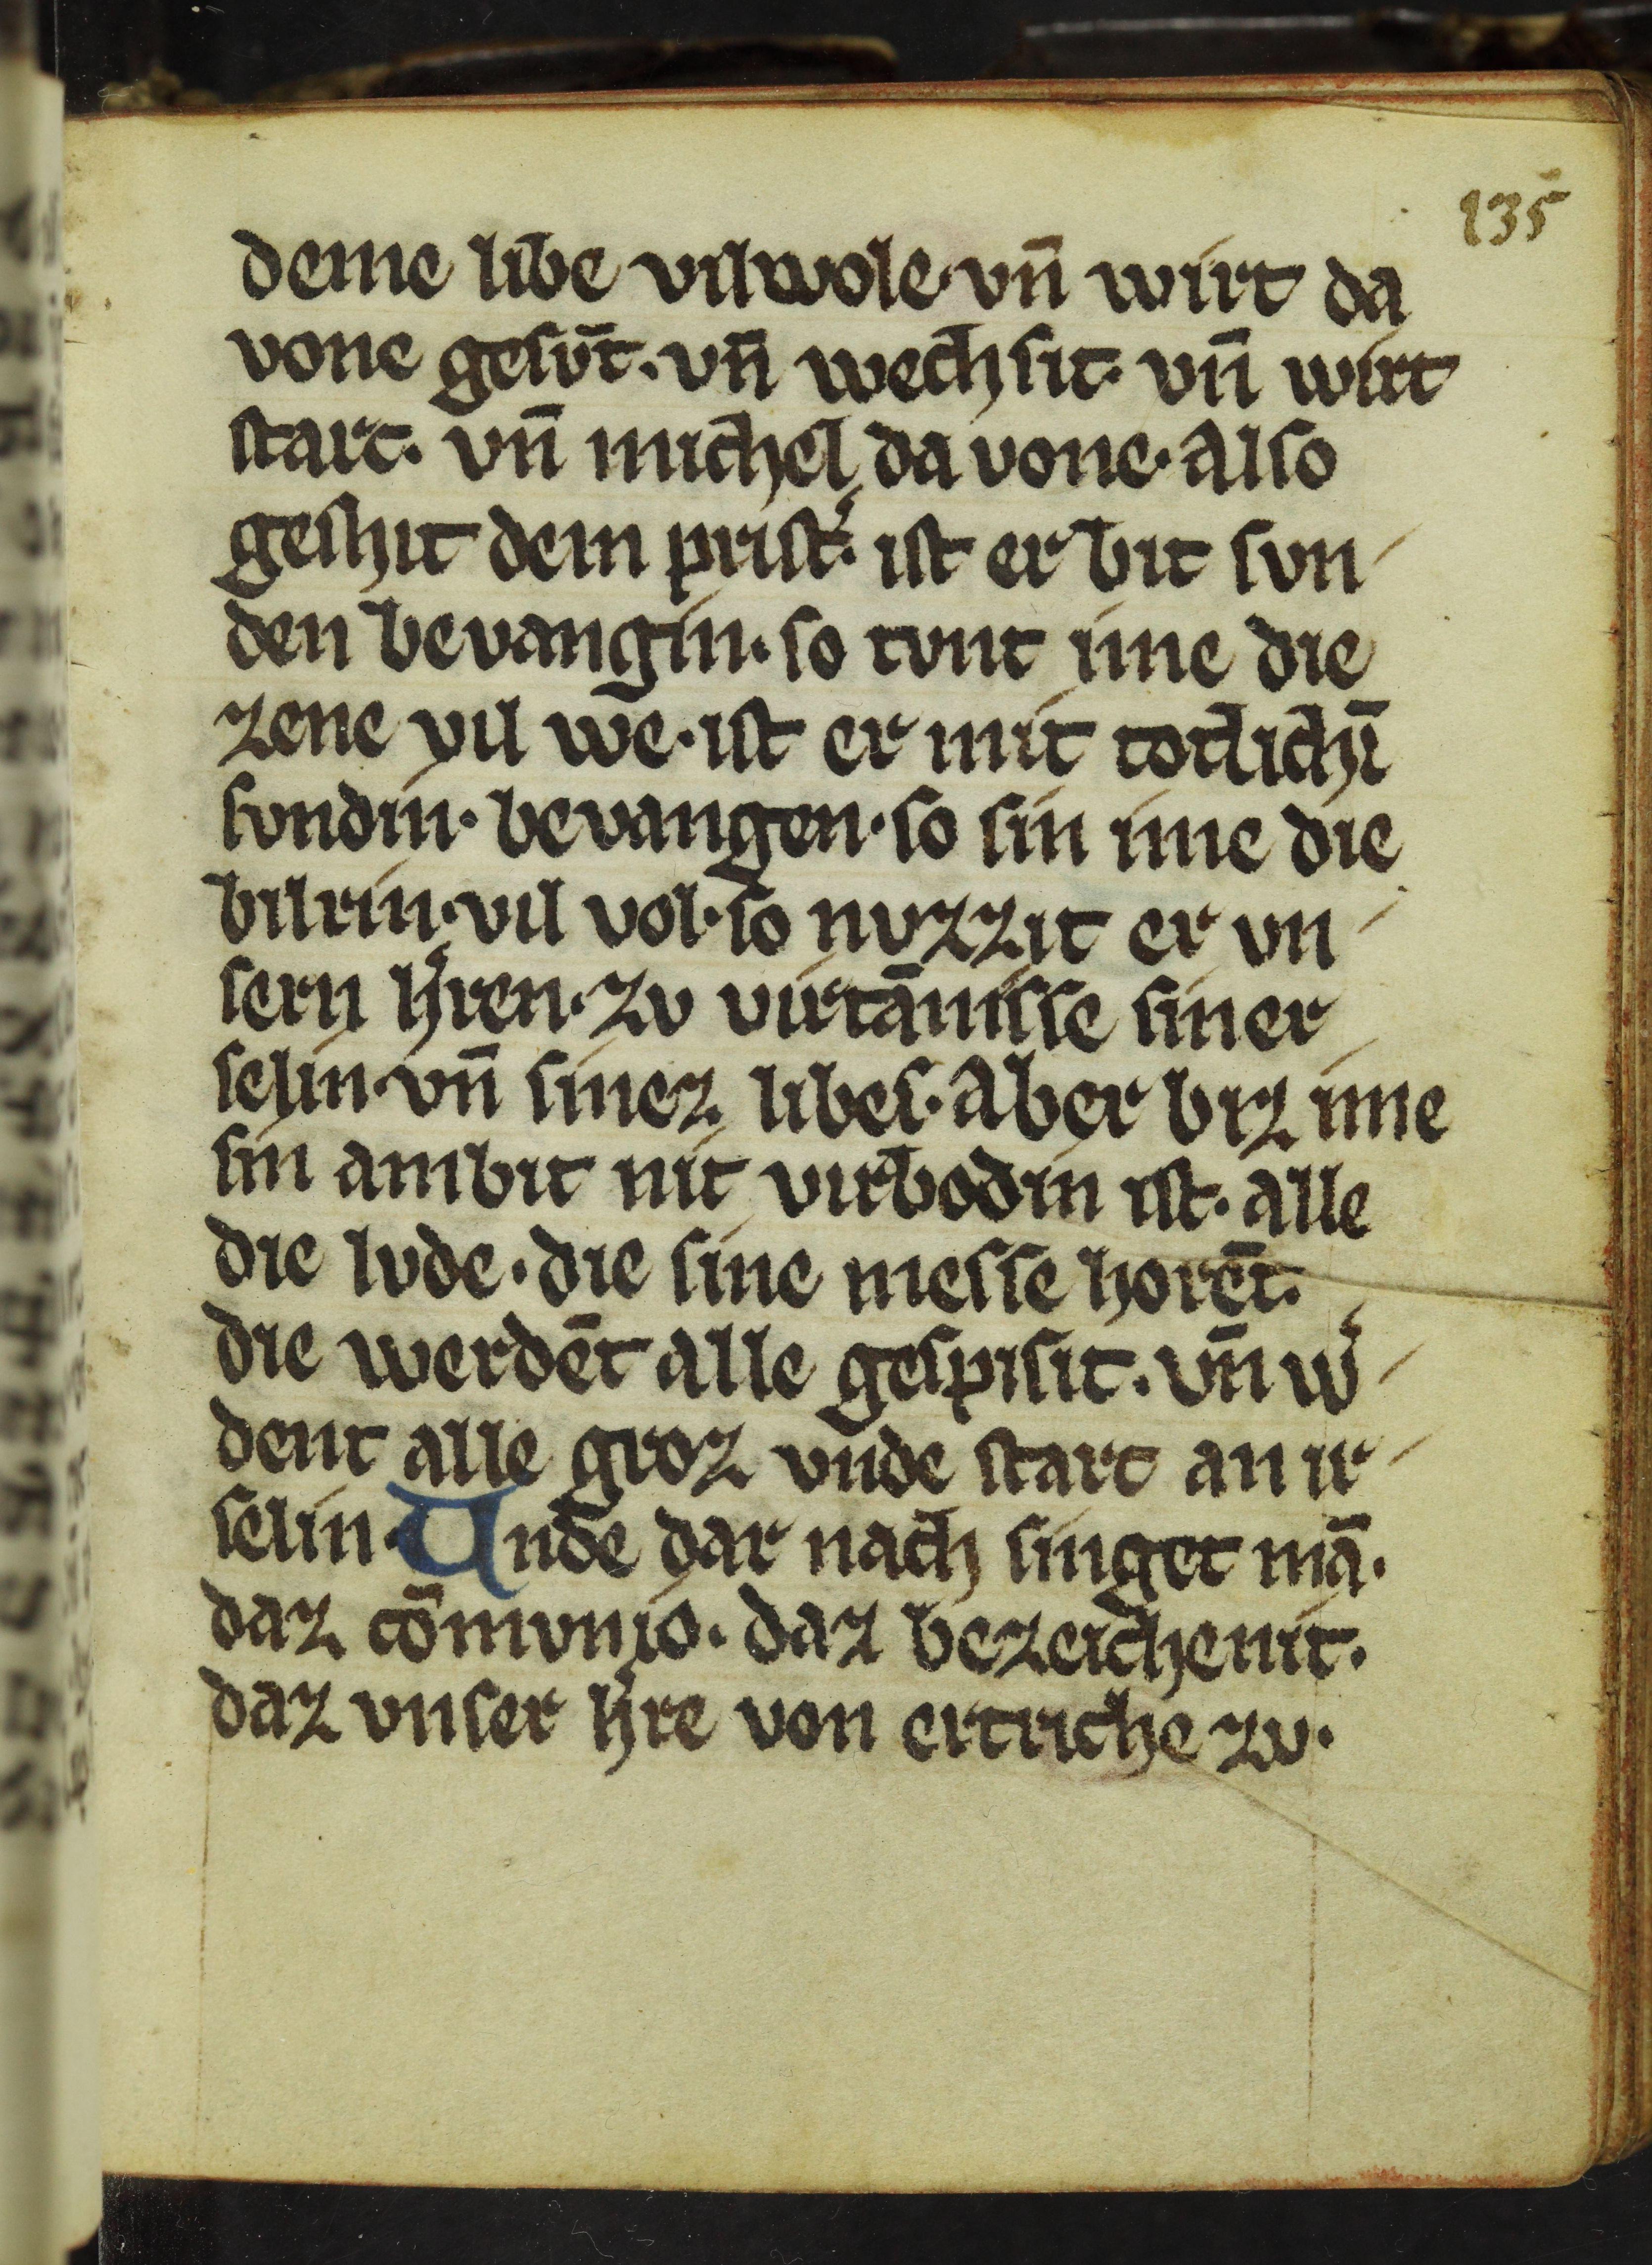 135
deme libe vilwole·vn̄ wirt da
vone gesūt·vn̄ wechsit·vn̄ wirt
starc·vn̄ michel da vone·also
geshit dem prist͛·ist er bit svn-
den bevangin·so tvnt ime die
zene vil we·ist er mit totlichī
svndin·bevangen·so sin ime die
bilrin·vil vol·so nvzzit er vn-
sern h͛ren·zv virtāmisse siner
selin·vn̄ sinez libes·Aber biz ime
sin ambit nit virbodin ist·alle
die lvde·die sine messe horēt·
die werdēt alle gespisit·vn̄ w͛-
dent alle groz vnde starc an ir-
selin·Unde dar nach singet mā·
daz cōmvnio·daz bezeichenit·
daz vnser h͛re von ertriche zv·